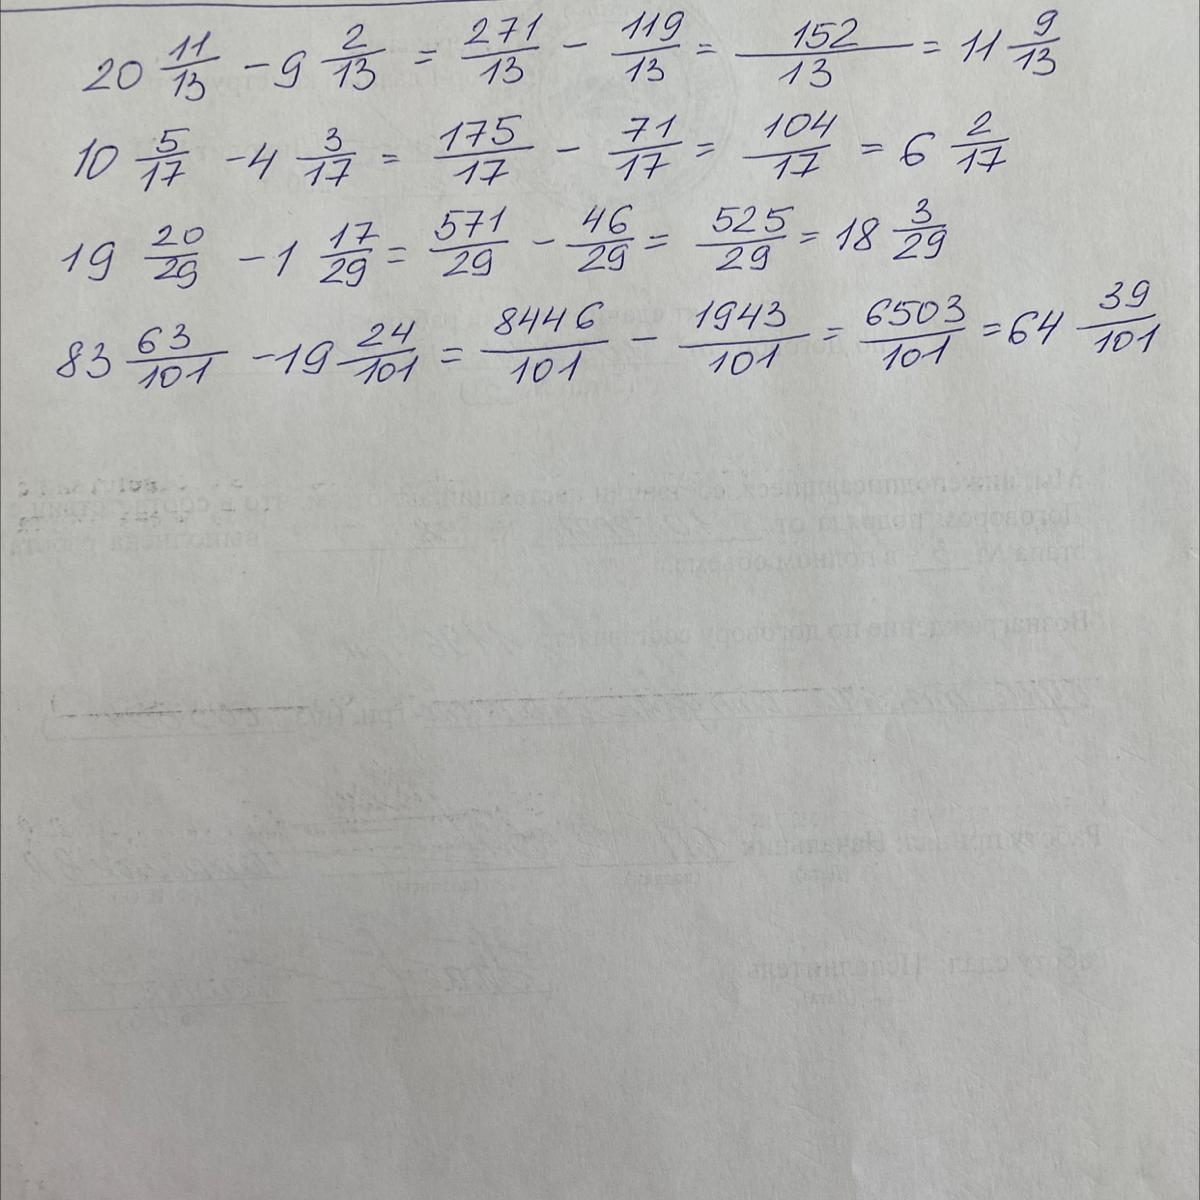 20 11/13 - 9 2/13 = 271/13 - 119/13 = 152/13 = 11 9/13
10 5/17 - 4 3/17 = 175/17 - 71/17 = 104/17 = 6 2/17
19 20/29 - 1 17/29 = 571/29 - 46/29 = 525/29 = 18 3/29
83 63/101 - 19 24/101 = 8446/101 - 1943/101 = 6503/101 = 64 39/101